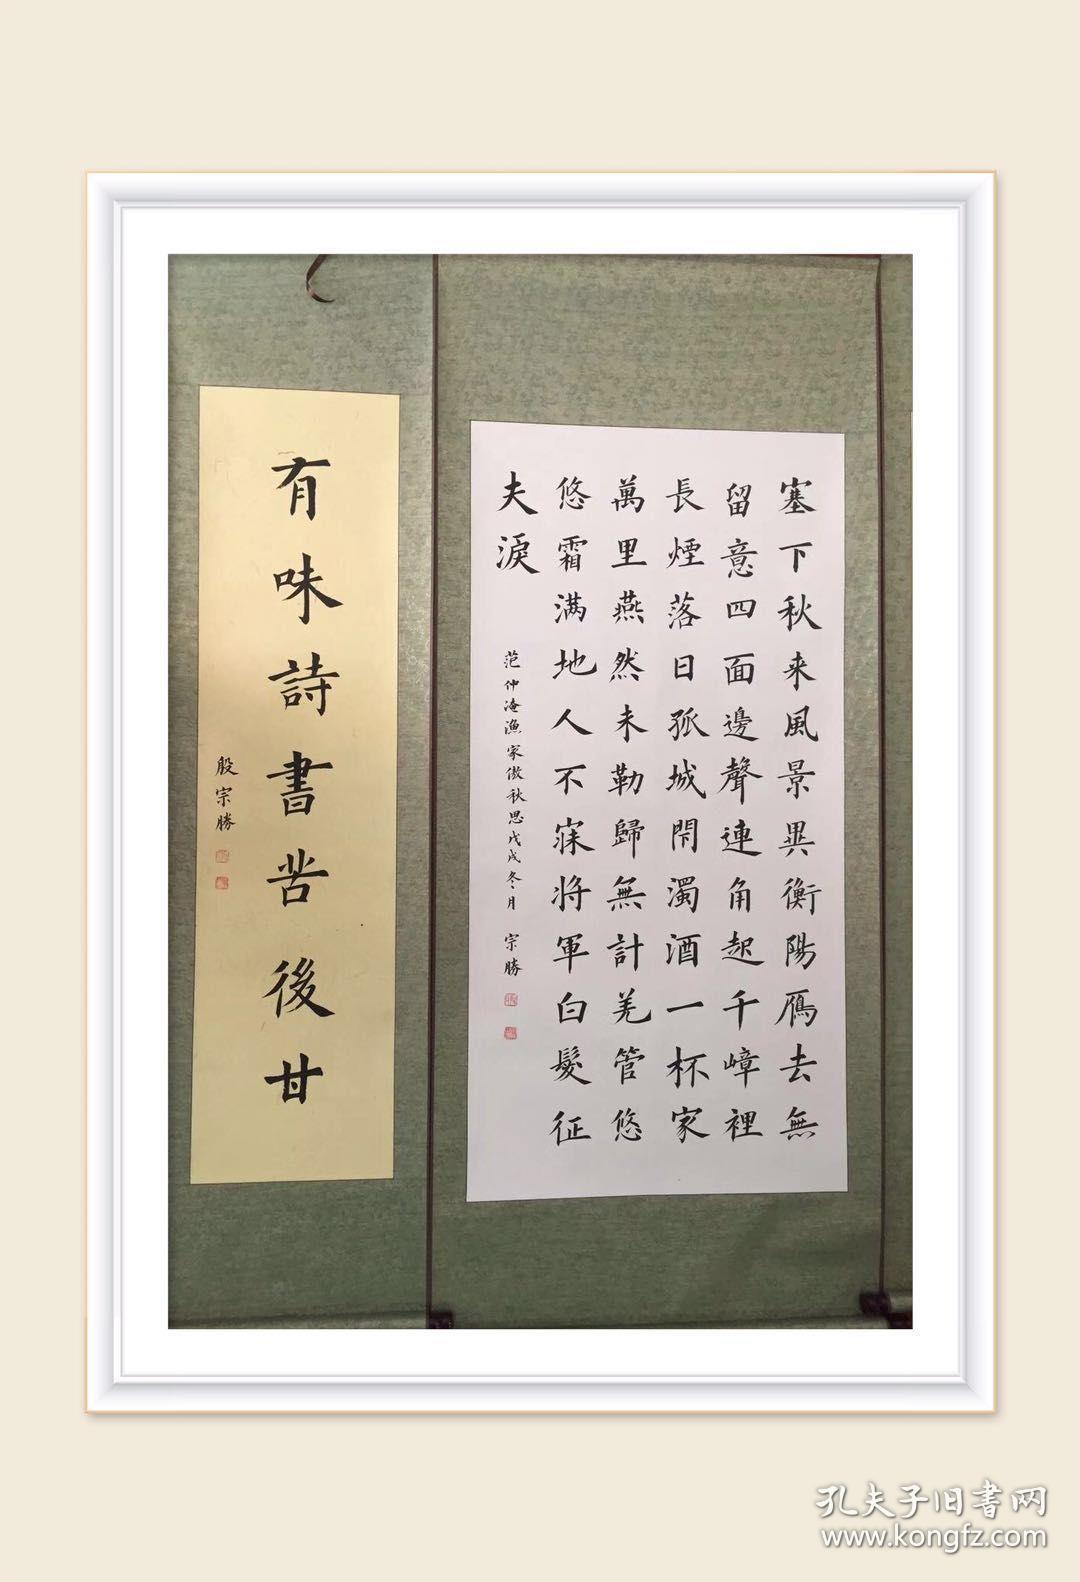 塞下秋来風景異衡陽鴈去無
留意四面邊聲連角起千嶂裡
長煙落日孤城閉濁酒一杯家
萬里燕然未勒歸無計羌管悠
悠霜满地人不寐将軍白髮征
夫淚
范仲淹漁家傲秋思戊戌冬月 宗勝
有味詩書苦後甘
殷宗勝
孔夫子旧書网
www.kongfz.com